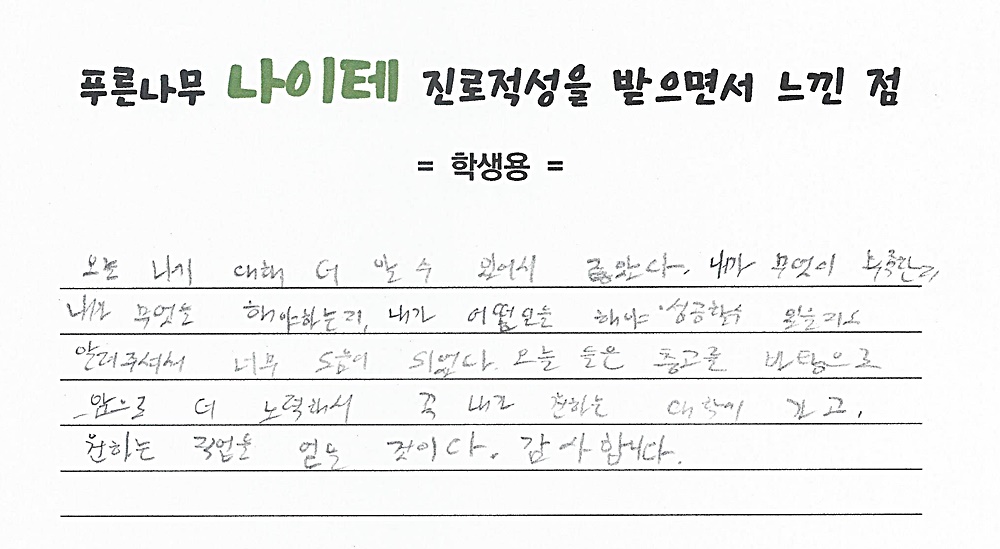 푸른나무 나이테 진로적성을 받으면서 느낀 점
= 학생용 =
오늘 나에 대해 더 알 수 있어서 좋았다. 내가 무엇이 부족한지,
내가 무엇을 해야하는지, 내가 어떻을 해야 성공할수 있을지도
알려주셔서 너무 도움이 되었다. 오늘 들은 충고를 바탕으로
앞으로 더 노력해서 꼭 내가 원하는 대학에 가고,
원하는 직업을 얻을 것이다. 감사합니다.